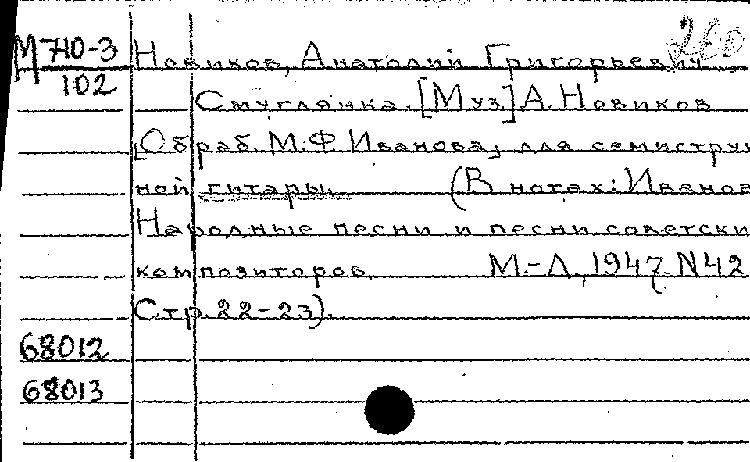 260
М 710-3 Новиков, Анатолий Григорьевич
102 Смуглянка. [Муз] А. Новиков
[Обраб. М.Ф Иванова, для семиструн
ной гитары (В нотах: Иванов
Народные песни и песни советски
композиторов. М.-Л., 1947 N42
Стр. 22-23).
68012
68013